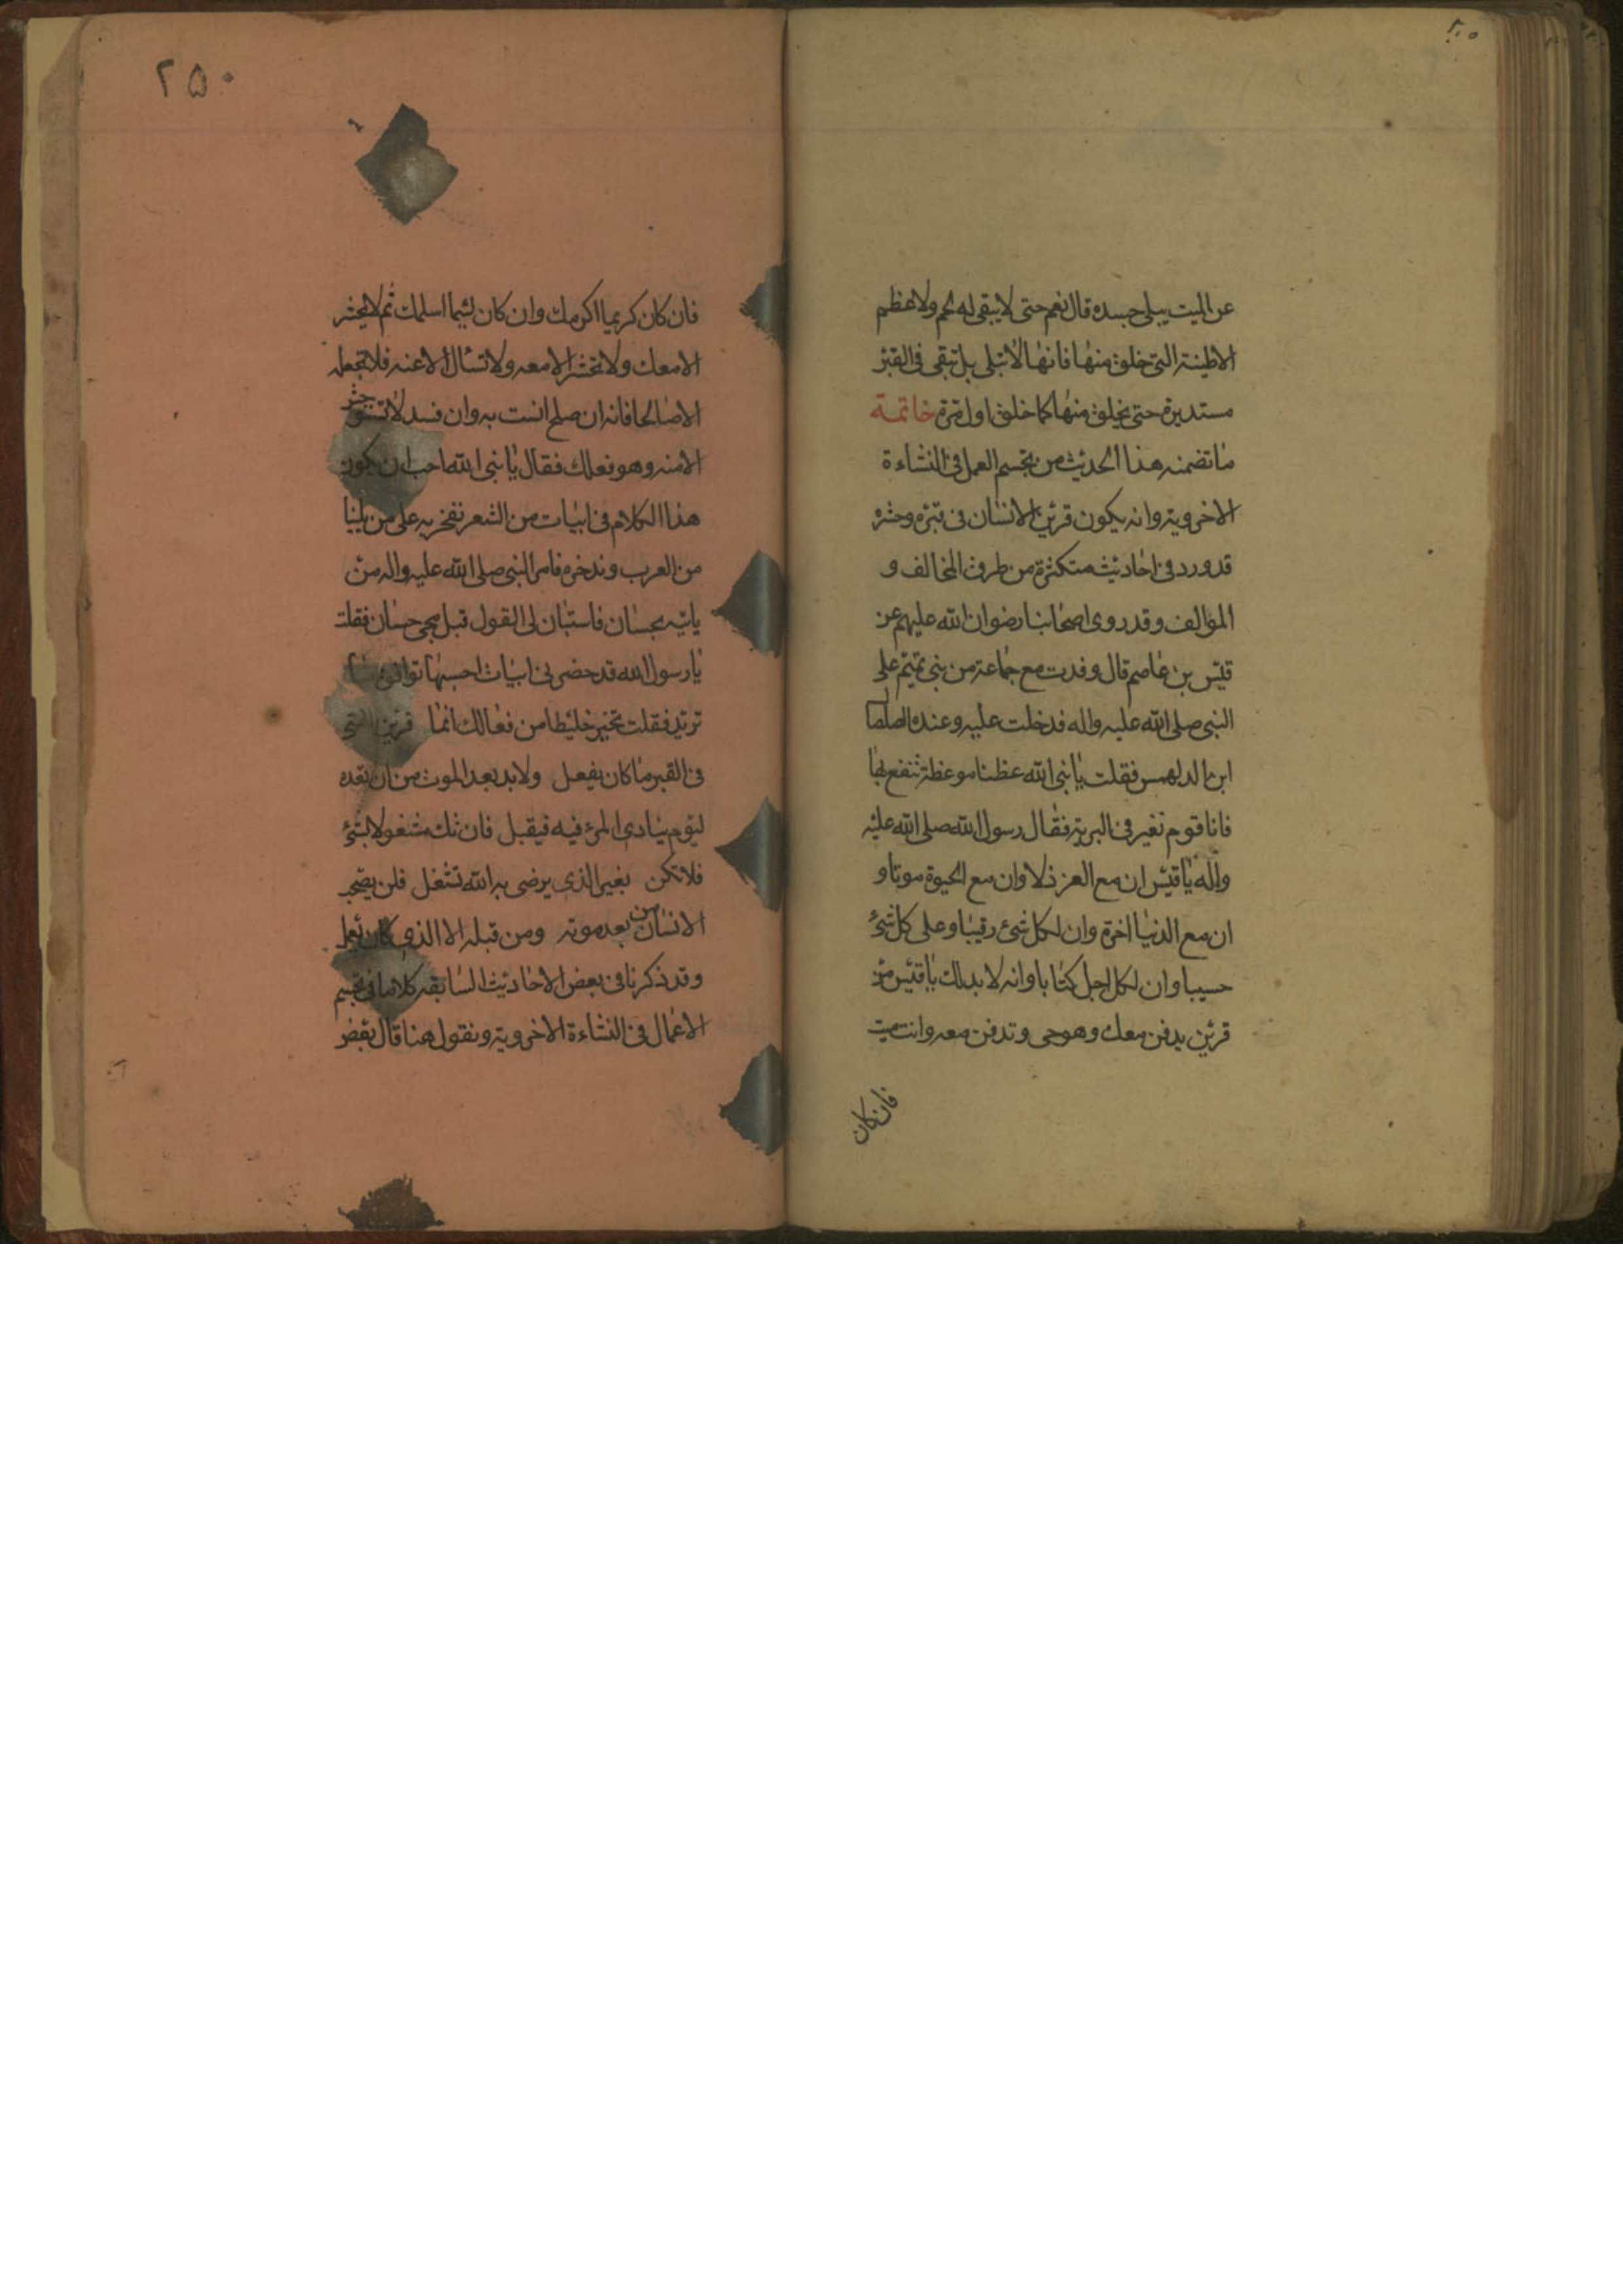 عن الميت يبلى جسده قال نعم حتى لا يبقى له لحم ولا عظم
الا طينته التى خلق منها فانها لا تبلى بل تبقى فى القبر
مستديرة حتى يخلق منها كما خلق اول مرة خاتمة
ما تضمنه هذا الحديث من تجسم العمل فى النشاءة
الاخروية وانه يكون قرين الانسان فى قبره وحشره
قد ورد فى احاديث متكثرة من طرق المخالف و
المؤالف وقد روى اصحابنا رضوان الله عليهم عن
قيس بن عاصم قال وفدت مع جماعة من بنى تميم على
النبى صلى الله عليه واله فدخلت عليه وعنده الصلصا
ابن الدلهمس فقلت يا نبى الله عظنا موعظة ننتفع بها
فانا قوم نغير فى البرية فقال رسول الله صلى الله عليه
واله يا قيس ان مع العز ذلا وان مع الحيوة موتا و
ان مع الدنيا اخرة وان لكل شئ رقيبا وعلى كل شئ
حسيبا وان لكل اجل كتابا وانه لا بد لك يا قيس من
قرين يدفن معك وهو حى وتدفن معه وانت ميت
فان كان
٢٥٠
فان كان كريما اكرمك وان كان لئيما اسلمك ثم لا يحشر
الا معك ولا تحشر الا معه ولا تسأل الا عنه فلا تجعله
الا صالحا فانه ان صلح انست به وان فسد لا تستوحش
الا منه وهو فعلك فقال يا نبى الله احب ان يكون
هذا الكلام فى ابيات من الشعر نفخر به على من يلينا
من العرب وندخره فامر النبى صلى الله عليه واله من
ياتيه بحسان فاستبان لى القول قبل مجى حسان فقلت
يا رسول الله قد حضرنى ابيات احسبها توافق ما
تريد فقلت تخير خليطا من فعالك انما قرين الفتى
فى القبر ما كان يفعل ولا بد بعد الموت من ان تعده
ليوم ينادى المرء فيه فيقبل فان تك مشغولا بشئ
فلا تكن بغير الذى يرضى به الله تشغل فلن يصحب
الانسان من بعد موته ومن قبله الا الذى كان يعمل
وقد ذكرنا فى بعض الاحاديث السابقه كلاما فى تجسم
الاعمال فى النشاءة الاخروية ونقول هنا قال بعض